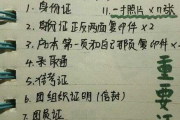 1. 身份证
11. 一寸照片×n张
2. 身份证正反两面复印件×2
3. 户口本第一页和自己那页复印件×2
4. 录取通
5. 准考证
6. 团组织证明(信封)
7. 团员证
重要